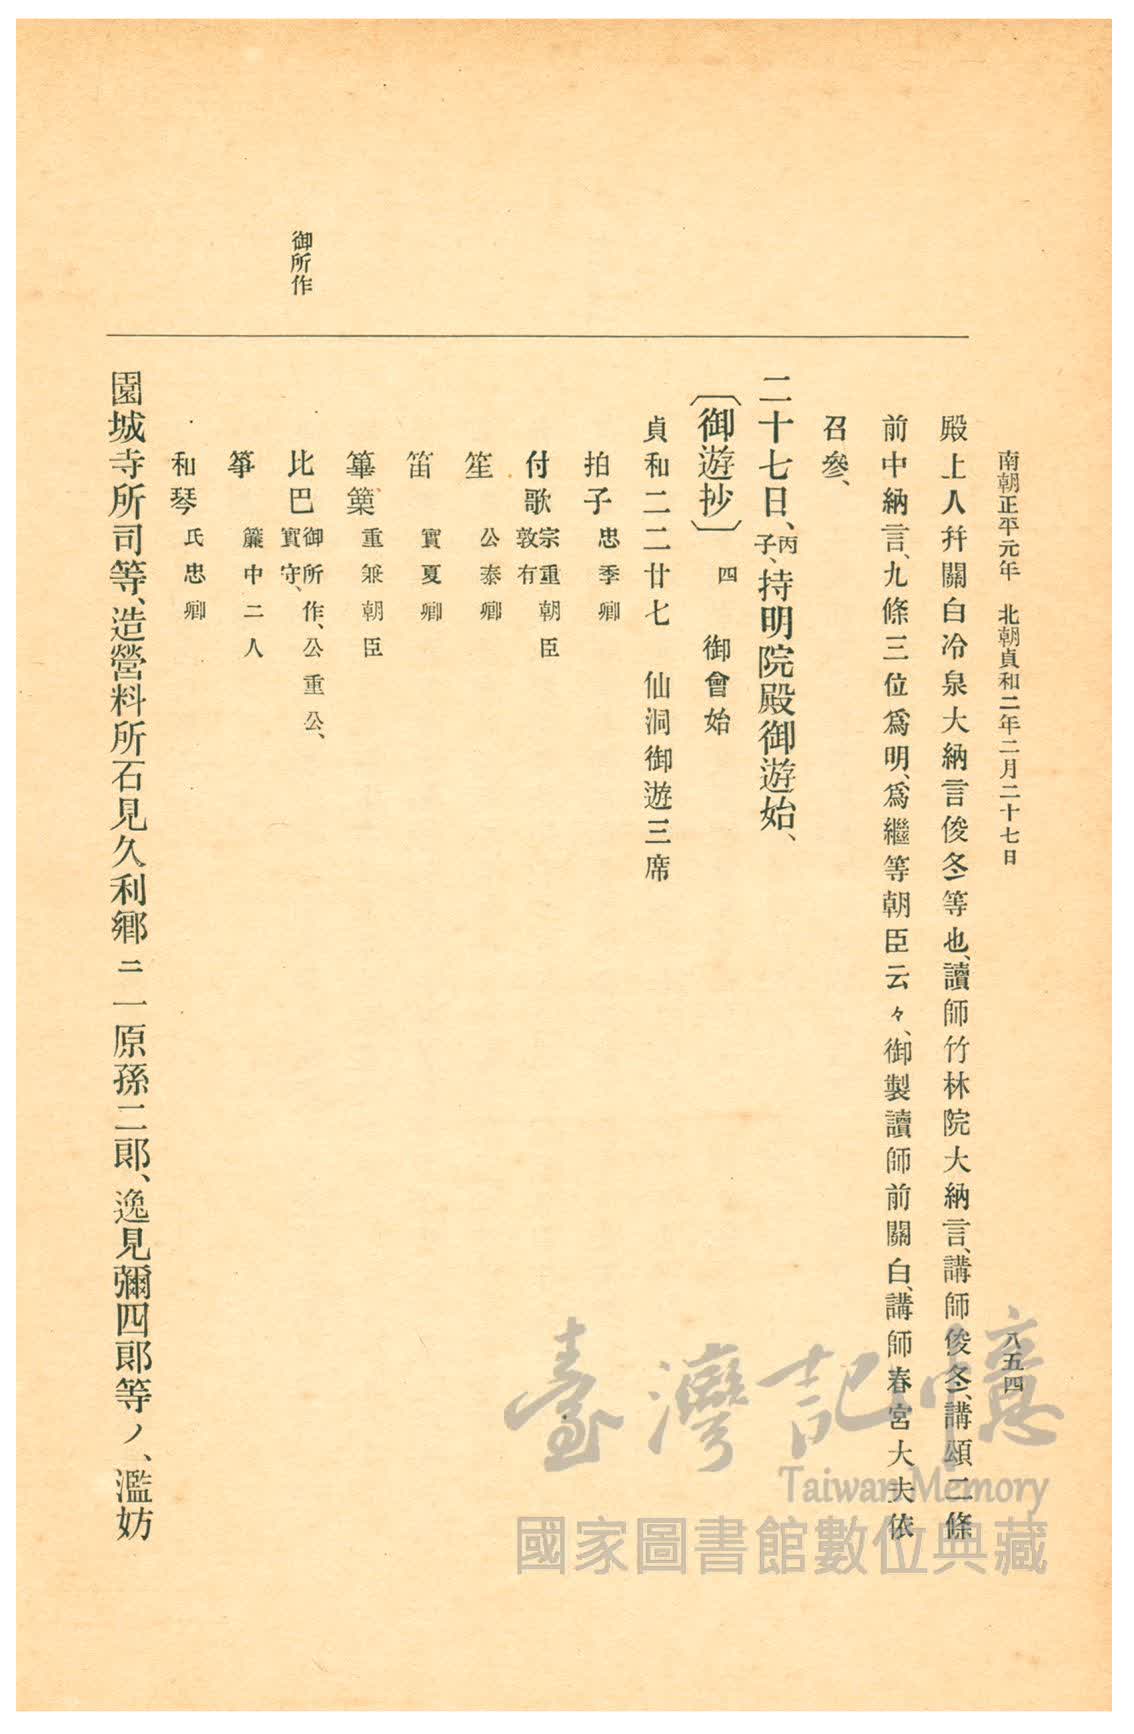 南朝正平元年　北朝貞和二年二月二十七日
八五四
殿上人幷關白冷泉大納言俊冬等也、讀師竹林院大納言、講師俊冬、講頌二條
前中納言、九條三位爲明、爲繼等朝臣云々、御製讀師前關白、講師春宮大夫依
召參、
二十七日、丙子、持明院殿御遊始、
〔御遊抄〕四　御會始
貞和二二廿七　仙洞御遊三席
拍子　忠季卿
付歌　宗重朝臣
敦有
笙　公泰卿
笛　實夏卿
篳篥　重兼朝臣
御所作
比巴　御所作、公重公、
實守、
箏　簾中二人
和琴　氏忠卿
園城寺所司等、造營料所石見久利鄕ニ一原孫二郞、逸見彌四郞等ノ、濫妨
臺灣記憶
Taiwan Memory
國家圖書館數位典藏